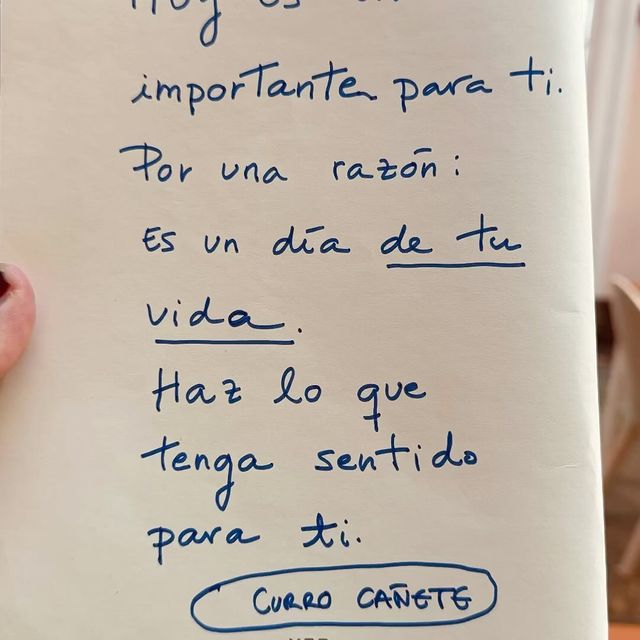 Hoy es un
importante para ti.
Por una razón:
Es un día de tu
vida.
Haz lo que
tenga sentido
para ti.
CURRO CAÑETE